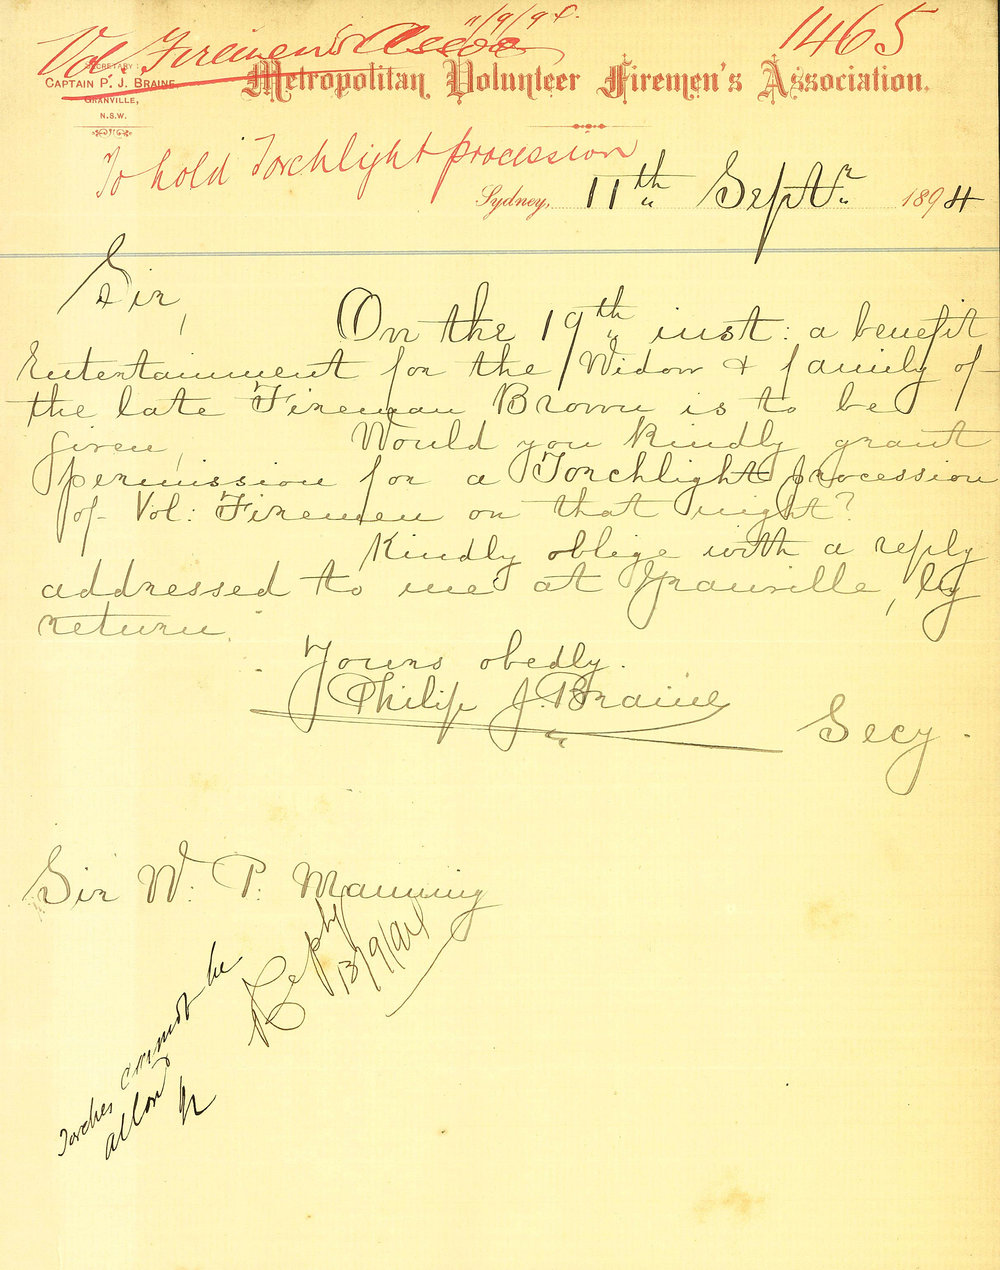 11/9/94.
Vol. Firemen's Assoc
1465
SECRETARY:
CAPTAIN P. J. BRAINE
GRANVILLE,
N.S.W.
Metropolitan Volunteer Firemen's Association.
To hold Torchlight procession
Sydney, 11th Septr 1894
Sir,
On the 19th inst: a benefit
Entertainment for the Widow & family of
the late Fireman Brown is to be
given, Would you kindly grant
permission for a Torchlight procession
of Vol: Firemen on that night?
Kindly oblige with a reply
addressed to me at Granville, by
return.
Yours obedly.
Philip J. Braine
Secy.
Sir W. P. Manning
Reply
13/9/94
Torches cannot be
allowd